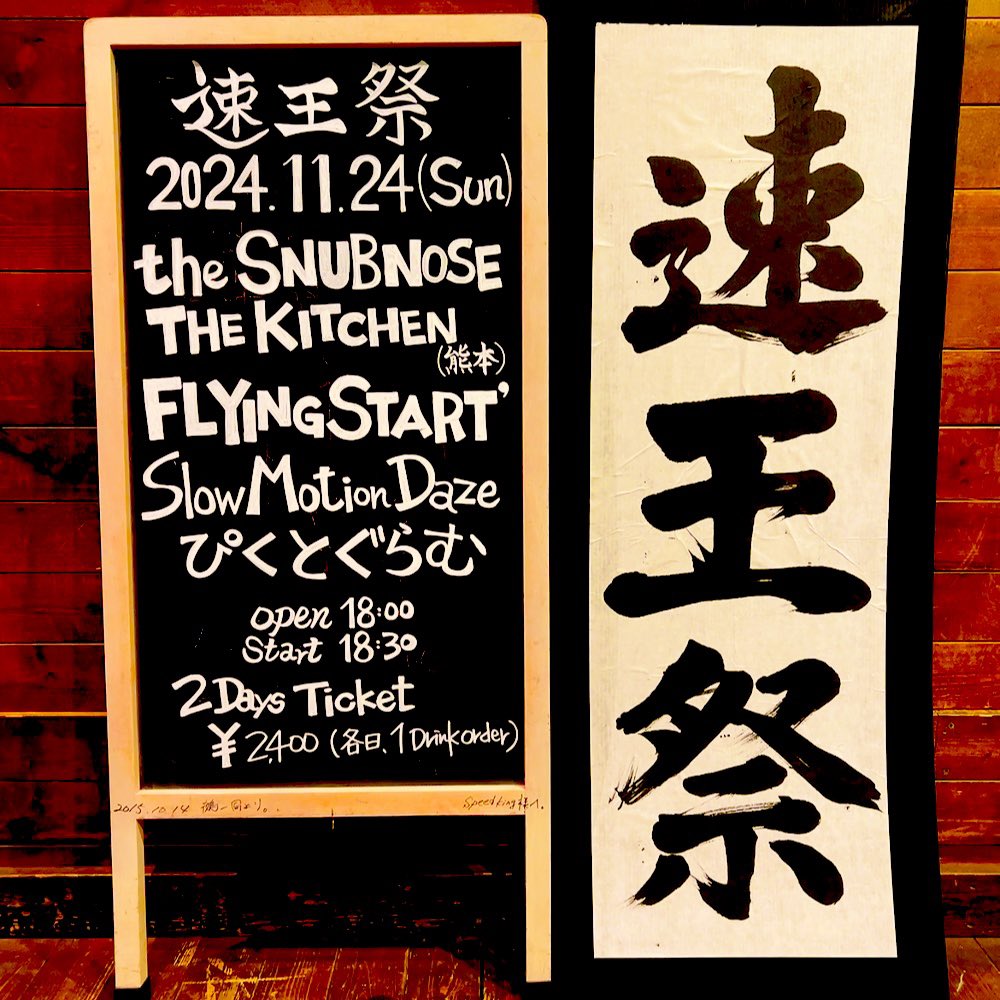 速王祭
2024.11.24(Sun)
the SNUBNOSE
THE KITCHEN
(熊本)
FLYING START'
Slow Motion Daze
ぴくとぐらむ
open 18:00
Start 18:30
2 Days Ticket
¥2,400 (各日、1 Drink order)
2015.10.14
Speedking様へ.
速王祭